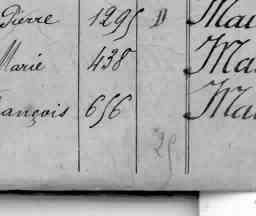 Pierre 1295 D Mau
Marie 438 Ma
rançois 656 Ma
25